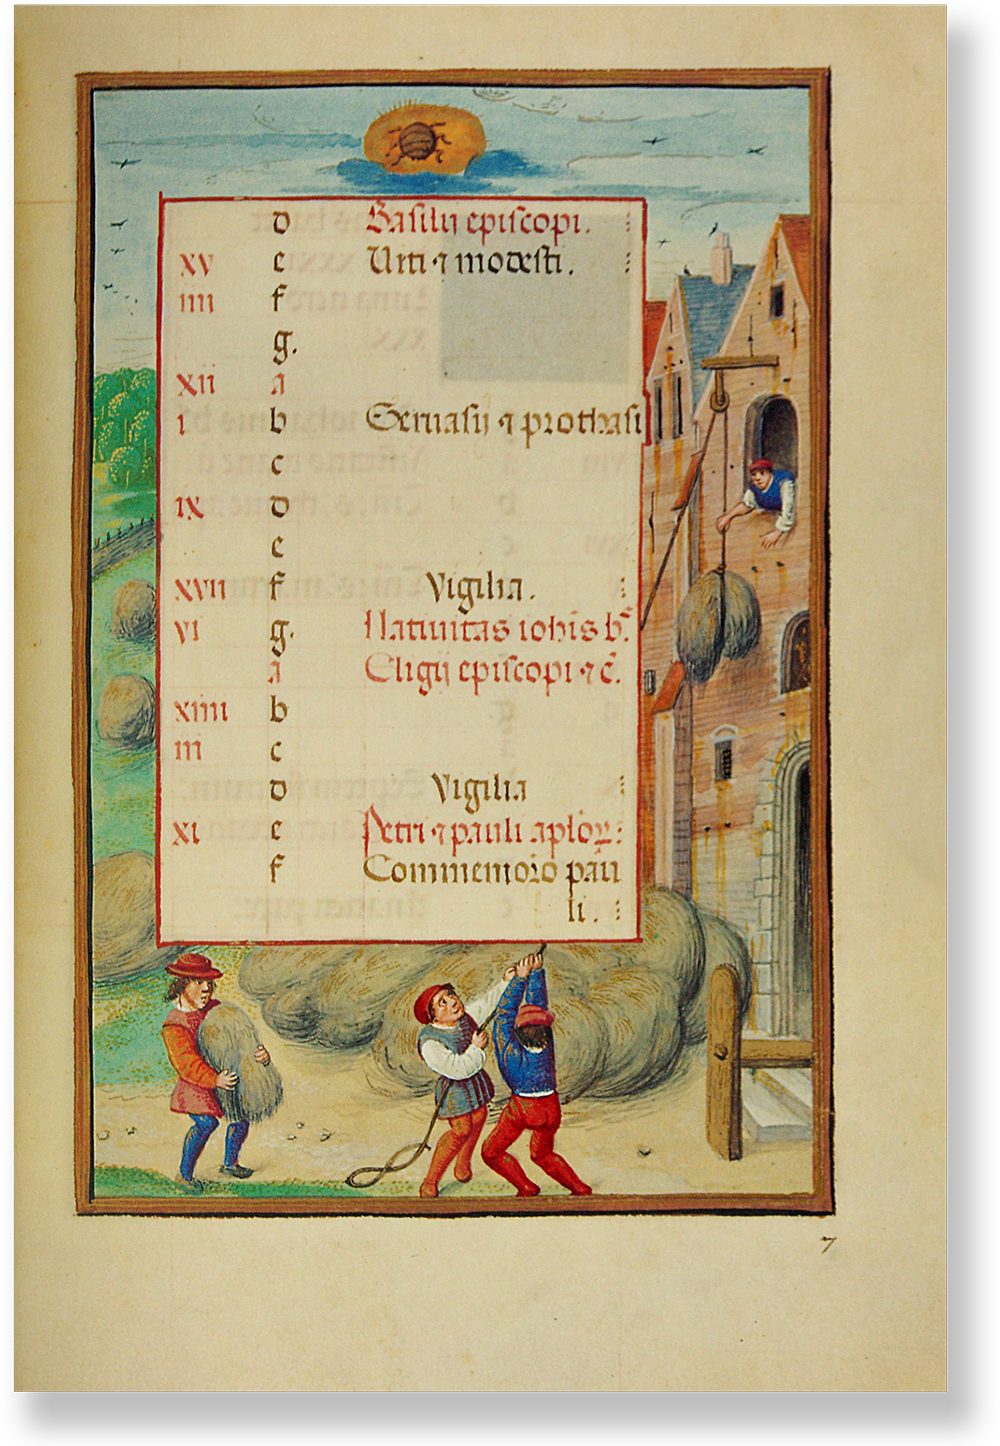 d Basilij episcopi.
xv e Viti ⁊ modesti.
iiii f
g.
xii a
i b Geruasij ⁊ prothasi
c
ix d
e
xvii f Vigilia.
vi g. Natiuitas ioħis b̃.
a Eligij episcopi ⁊ c̃.
xiiii b
iii c
d Vigilia
xi e Petri ⁊ pauli aploꝝ
f Commemoro pau
li.
7